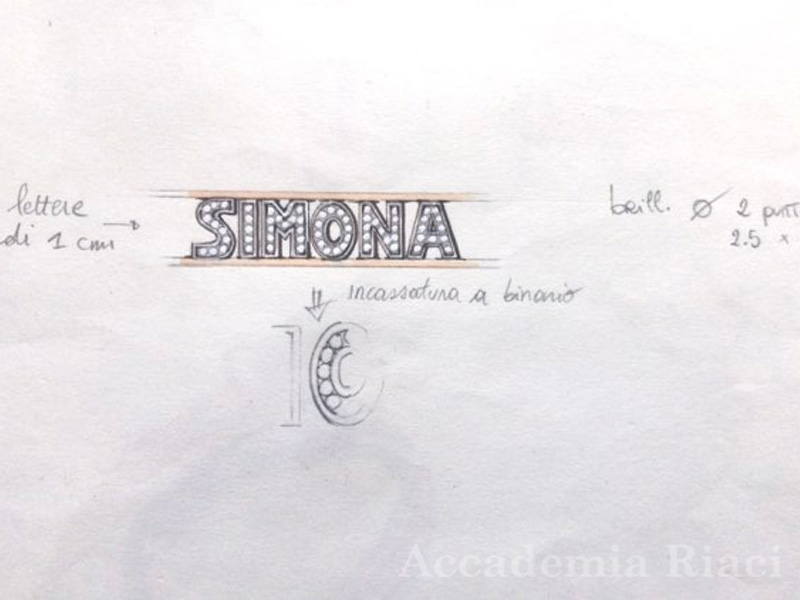 lettere
di 1 cm
SIMONA
brill. ø 2 punti
2.5 x
incassatura a binario
Accademia Riaci